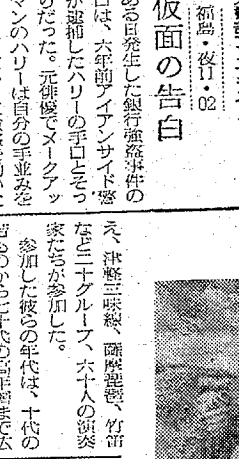 福島・夜11・02
仮面の告白
ある日発生した銀行強盗事件の
口は、六年前アイアンサイド警
が逮捕したハリーの手口とそっ
りだった。元俳優でメークアッ
マンのハリーは自分の手並みを
え、津軽三味線、薩摩琵琶、竹笛
など二十グループ、六十人の演奏
家たちが参加した。
参加した彼らの年代は、十代の